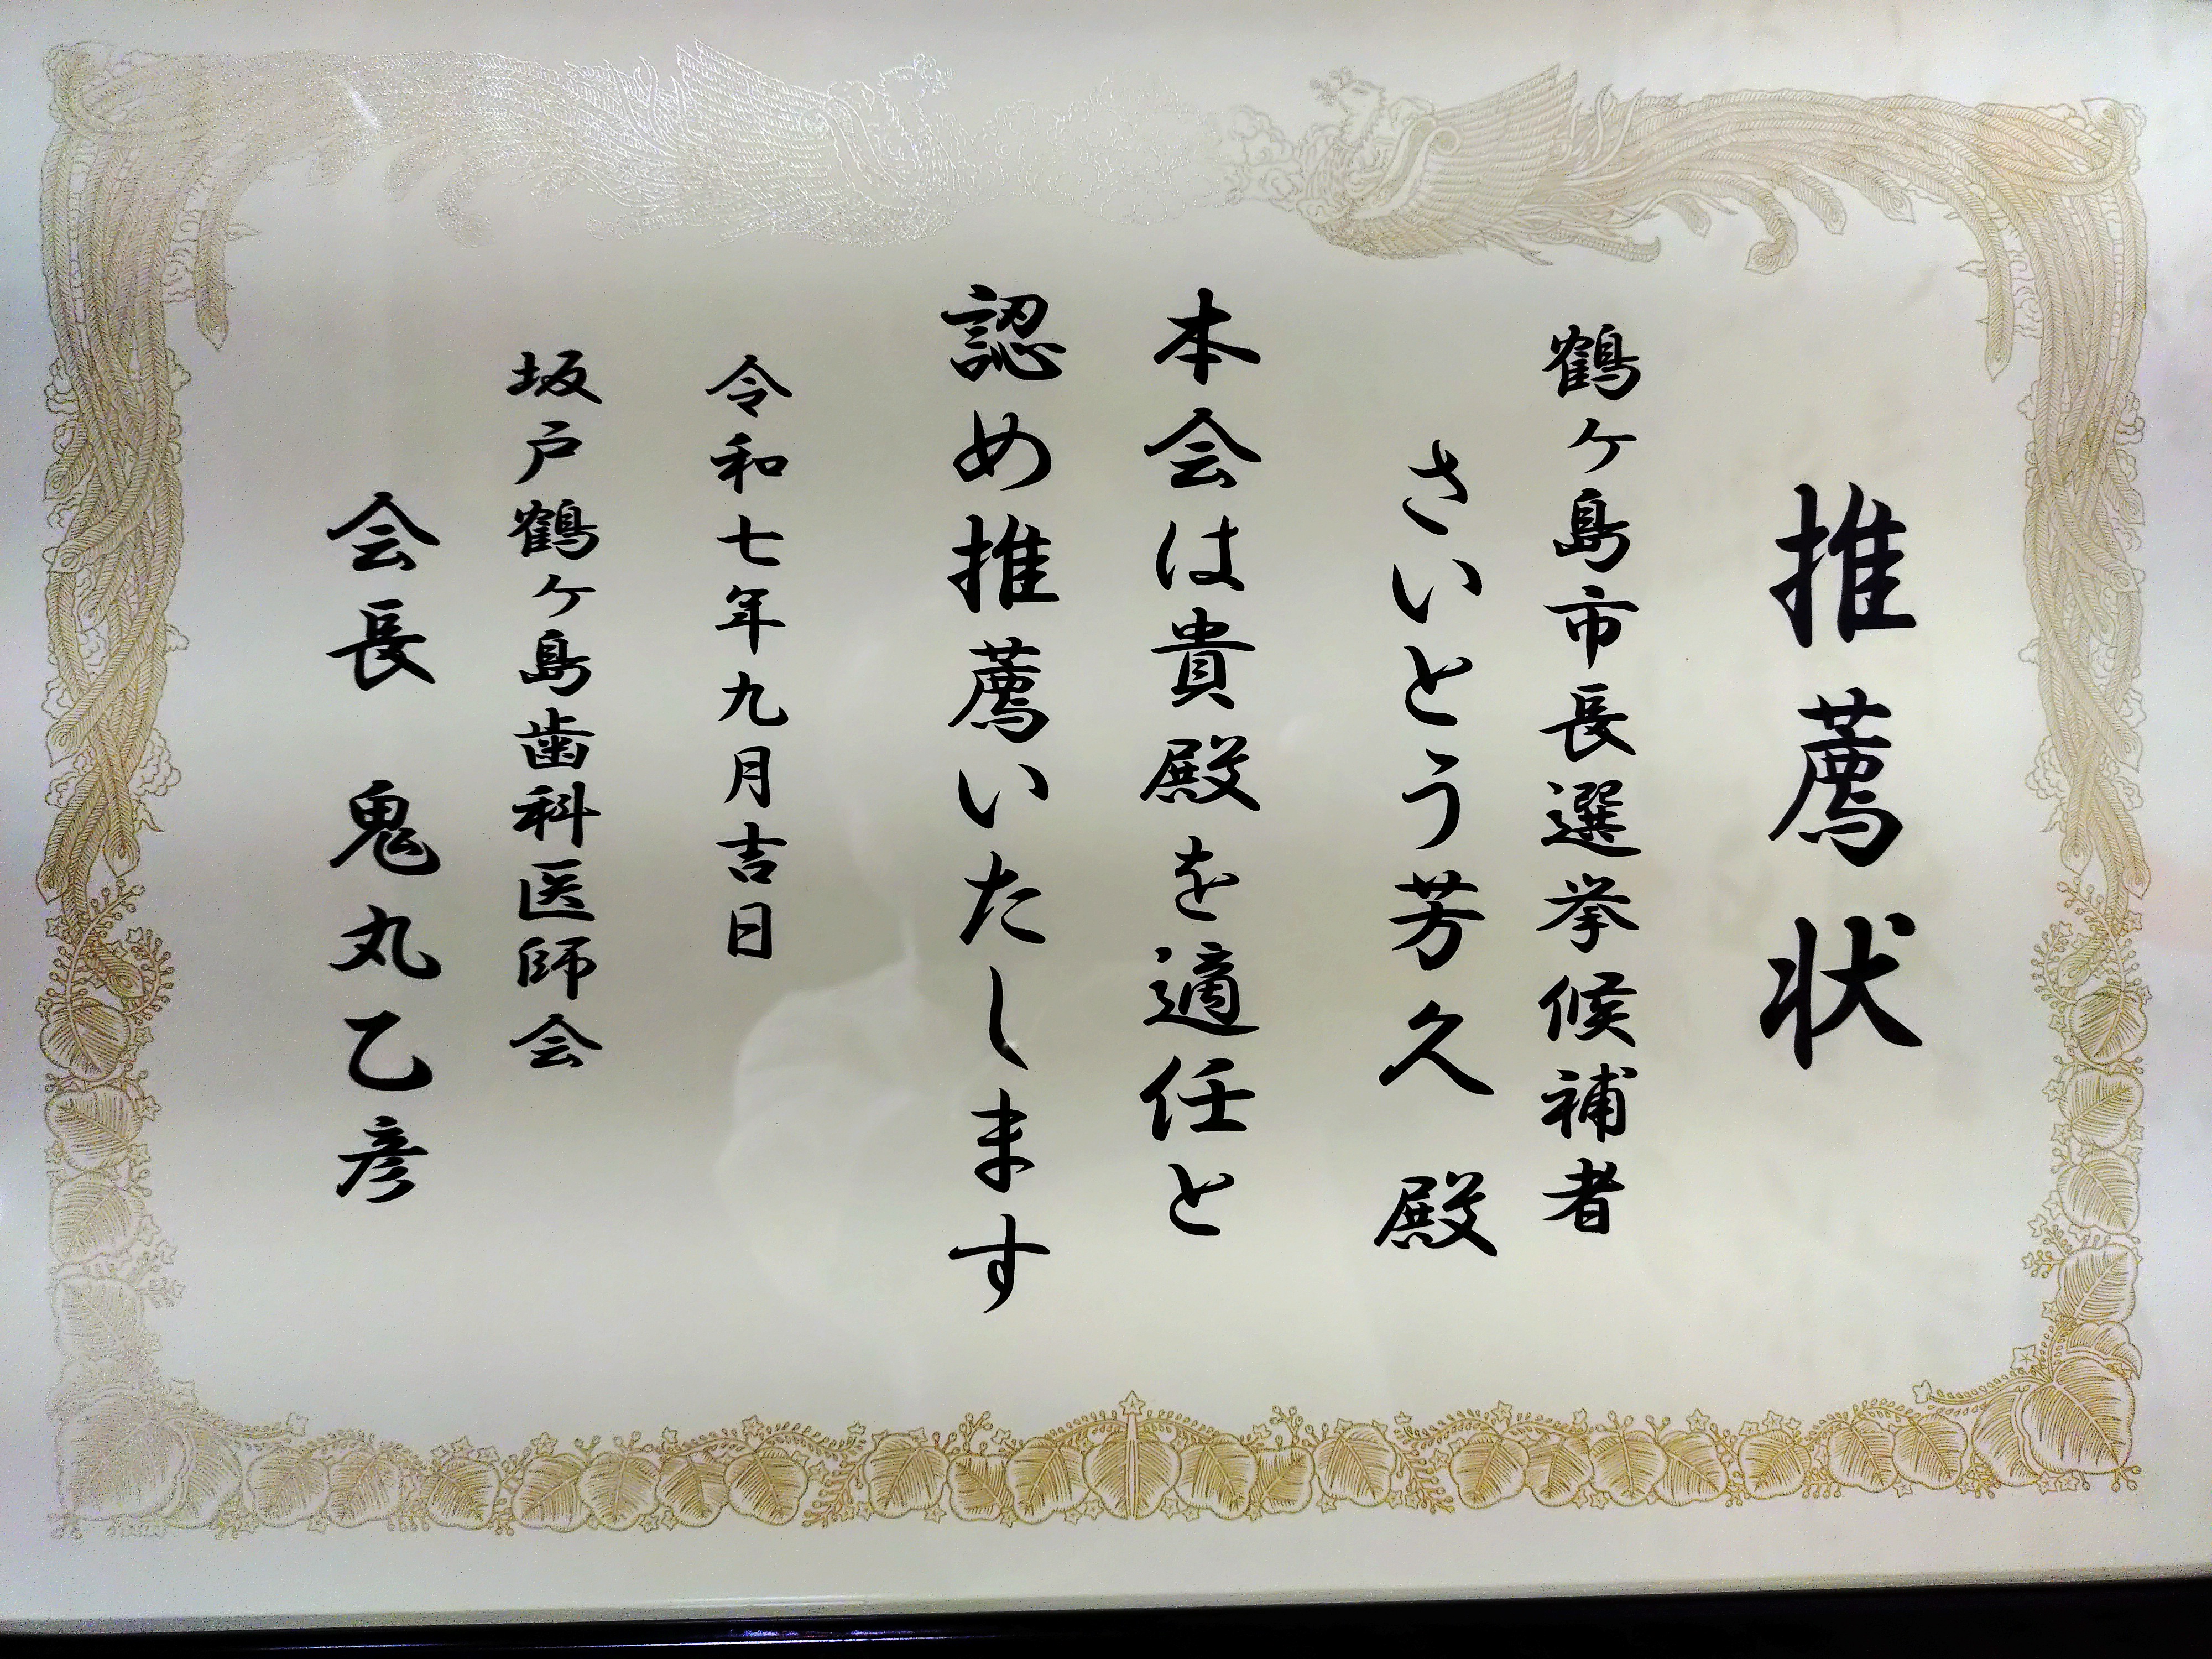 推薦状
鶴ヶ島市長選挙候補者
さいとう芳久 殿
本会は貴殿を適任と
認め推薦いたします
令和七年九月吉日
坂戸鶴ヶ島歯科医師会
会長 鬼丸乙彦